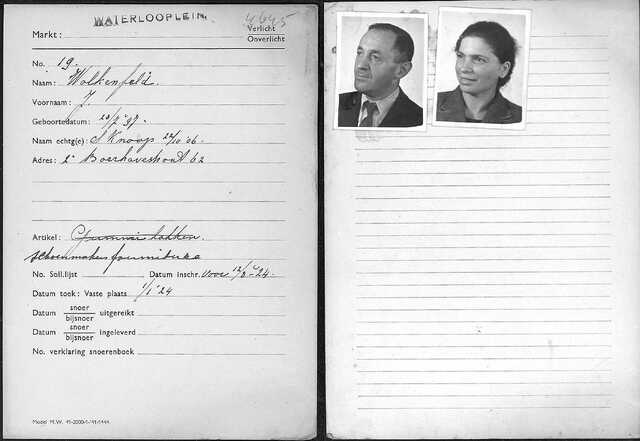 WATERLOOPLEIN.
4645
Markt:
Verlicht
Onverlicht
No. 19.
Naam: Wolkenfeld.
Voornaam: J.
Geboortedatum: 20/2 '97.
Naam echtg(e): S Knoop 22/10 '06.
Adres: 2e Boerhavestraat 62
Artikel: Gummi hakken.
schoenmakersfournituren
No. Soll.lijst Datum inschr. voor 12/6 - 24.
Datum toek: Vaste plaats 1/1 '24
Datum snoer bijsnoer uitgereikt
Datum snoer bijsnoer ingeleverd
No. verklaring snoerenboek
Model M.W.